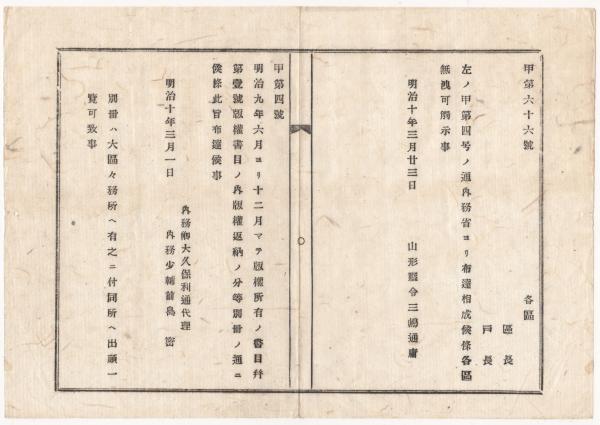 甲第六十六號
各區
區長
戸長
左ノ甲第四号ノ通內務省ヨリ布達相成候條各區
無洩可觸示事
明治十年三月廿三日
山形縣令三嶋通庸
甲第四號
明治九年六月ヨリ十二月マテ版權所有ノ書目幷
第壹號版權書目ノ內版權返納ノ分等別册ノ通ニ
候條此旨布達候事
明治十年三月一日
內務卿大久保利通代理
內務少輔前島 密
別册ハ大區々務所ヘ有之ニ付同所ヘ出頭一
覽可致事